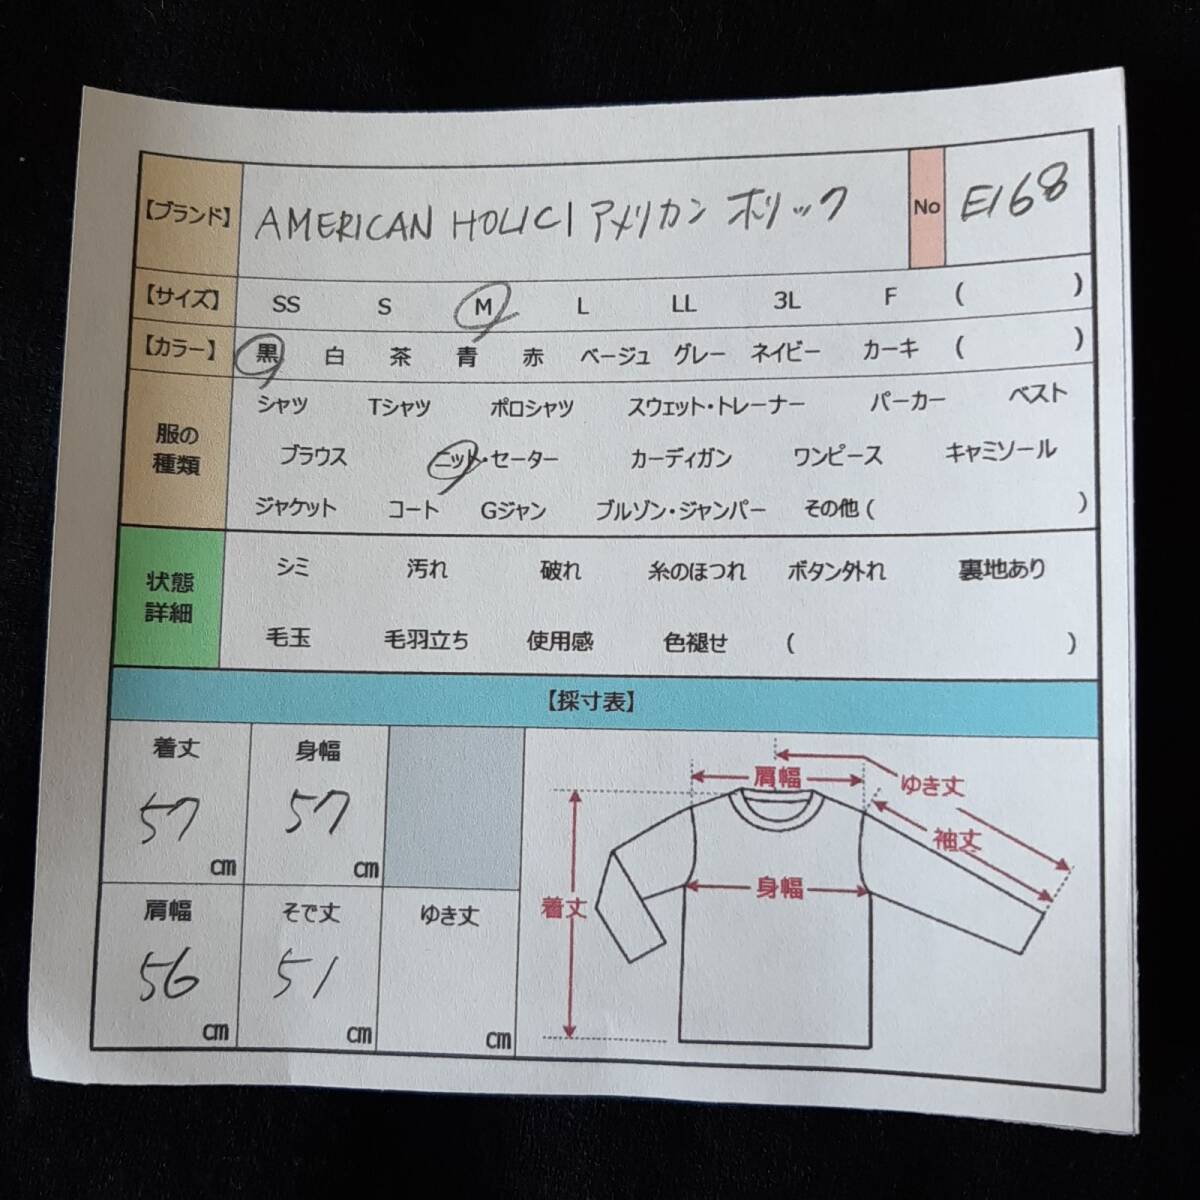 【ブランド】 AMERICAN HOLIC/アメリカン ホリック No E168
【サイズ】 SS S M L LL 3L F ( )
【カラー】 黒 白 茶 青 赤 ベージュ グレー ネイビー カーキ ( )
服の種類
シャツ Tシャツ ポロシャツ スウェット・トレーナー パーカー ベスト
ブラウス ニット・セーター カーディガン ワンピース キャミソール
ジャケット コート Gジャン ブルゾン・ジャンパー その他 ( )
状態詳細
シミ 汚れ 破れ 糸のほつれ ボタン外れ 裏地あり
毛玉 毛羽立ち 使用感 色褪せ ( )
【採寸表】
着丈 身幅
57 cm 57 cm
肩幅 そで丈 ゆき丈
56 cm 51 cm cm
肩幅
ゆき丈
袖丈
身幅
着丈